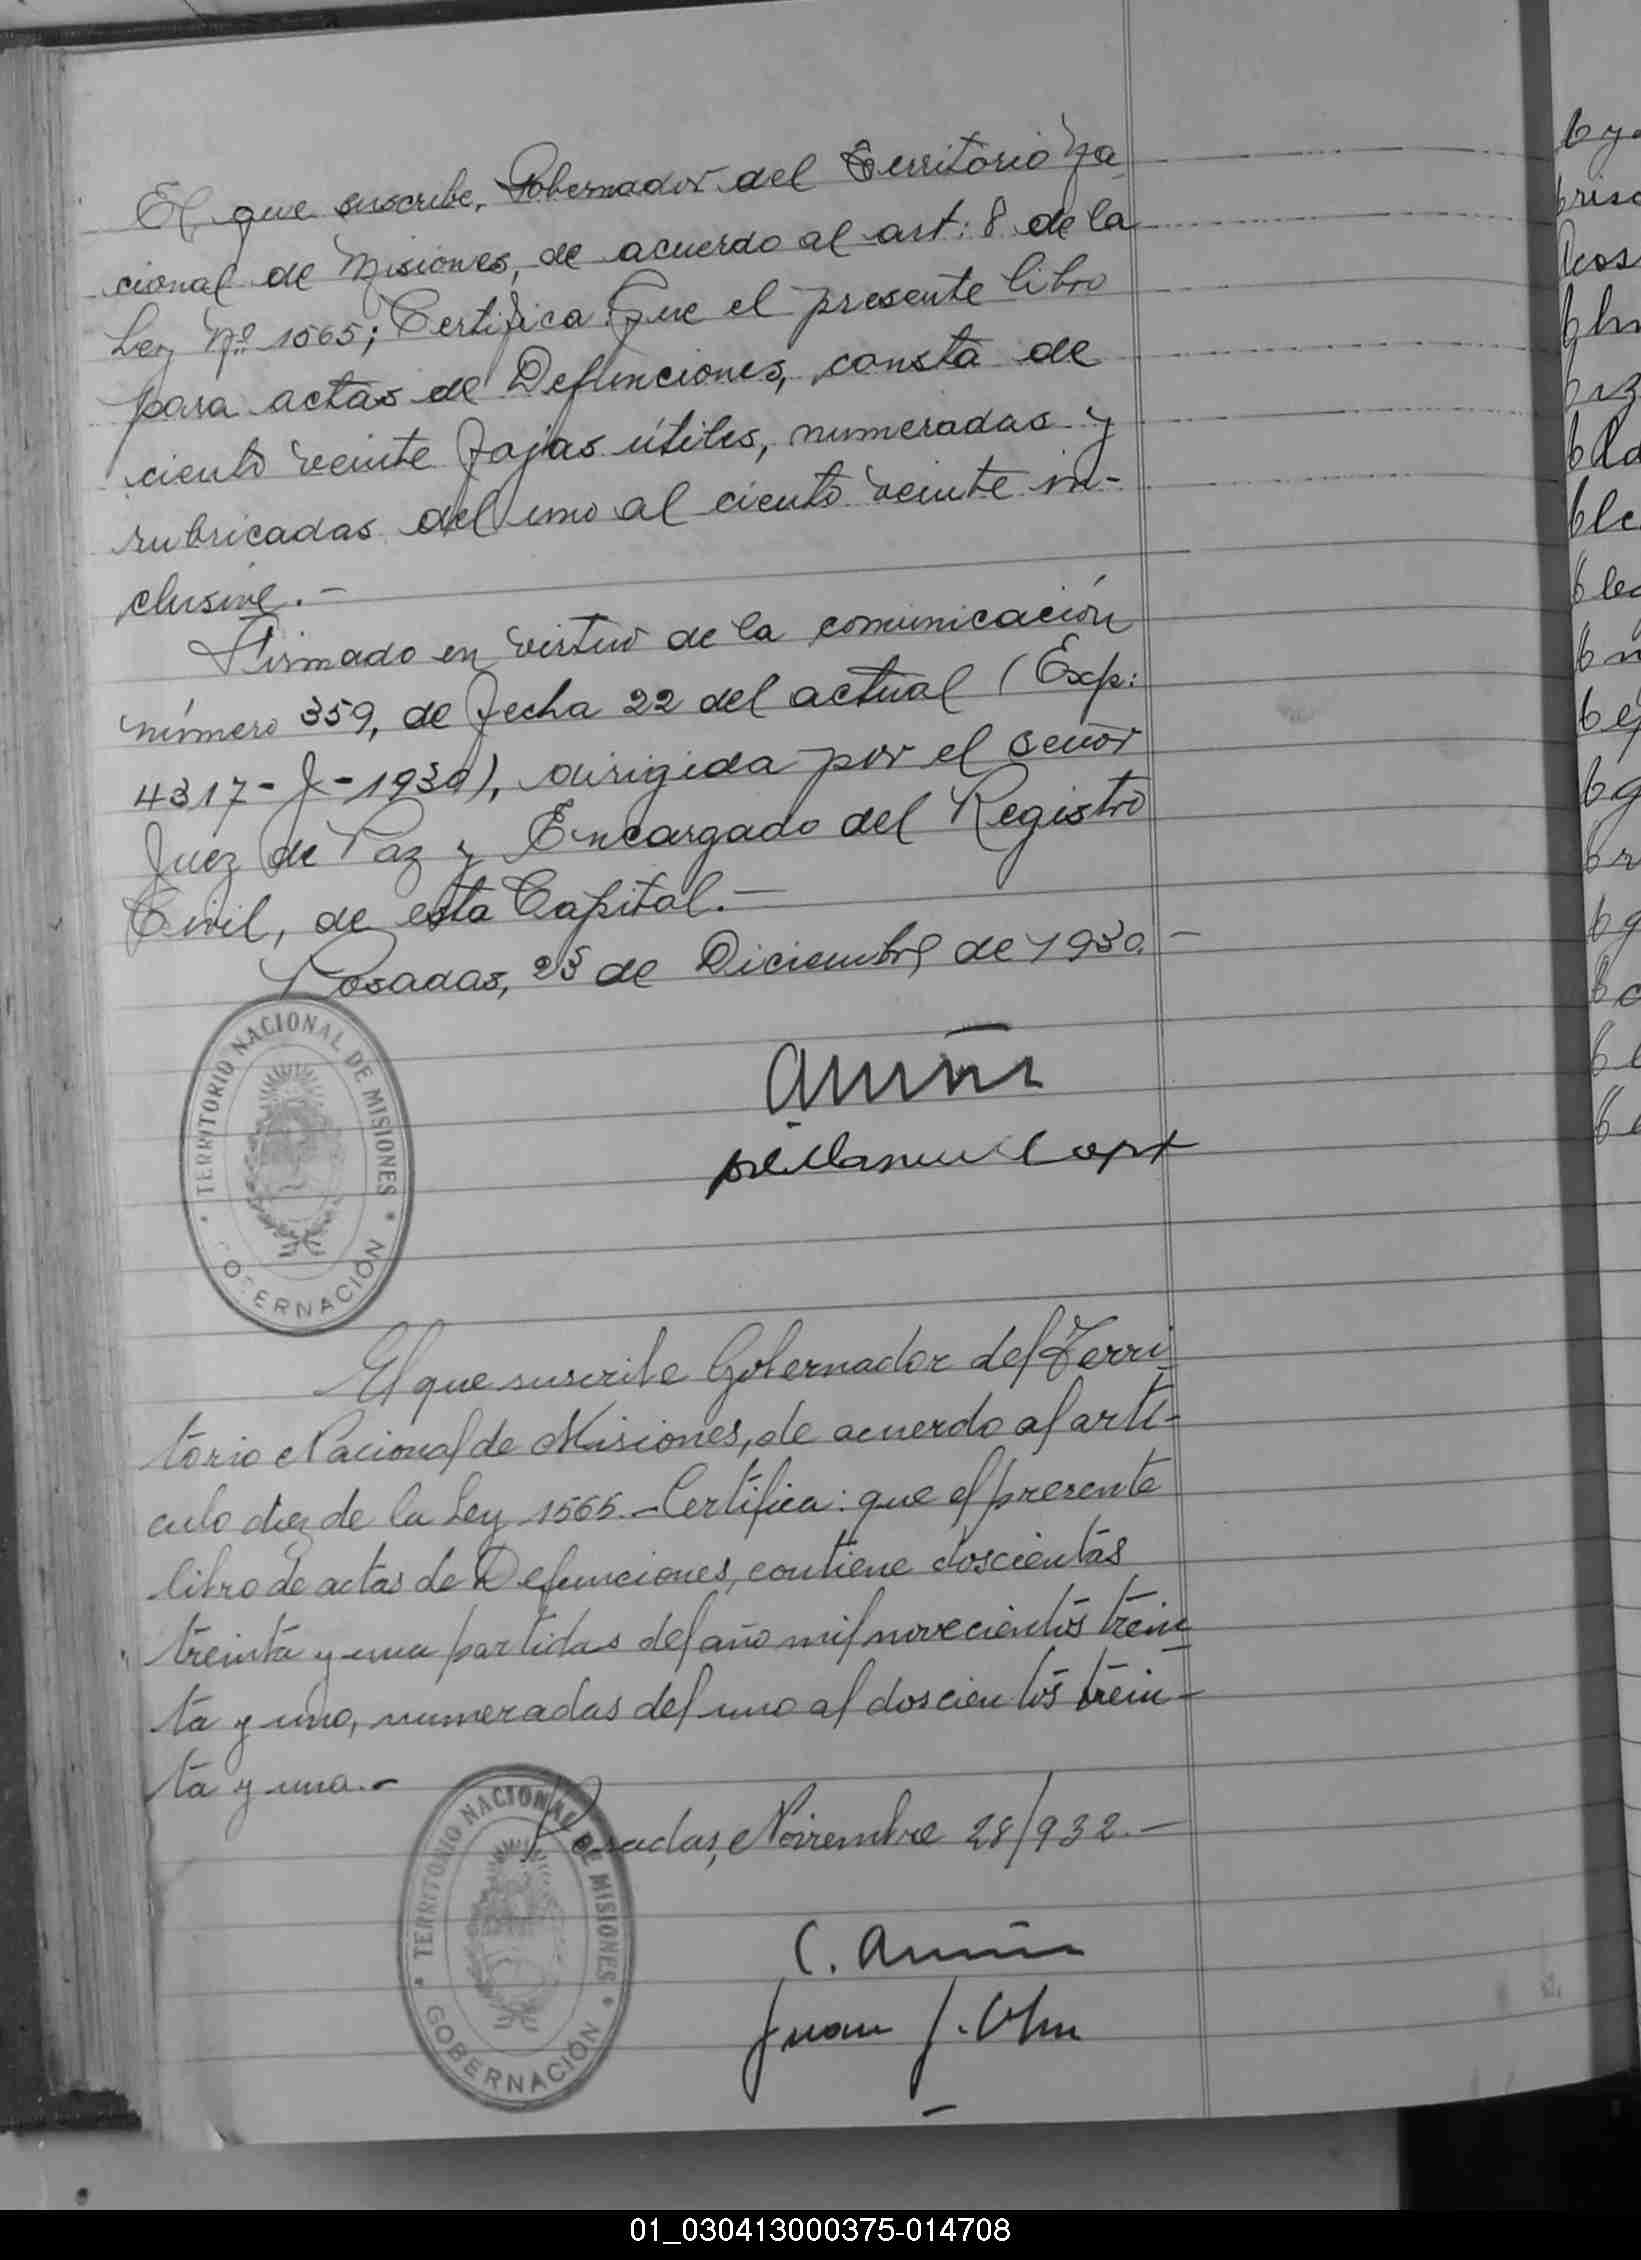 El que suscribe, Gobernador del Territorio Na-
cional de Misiones, de acuerdo al art: 8 de la
Ley Nº 1565; Certifica: Que el presente libro
para actas de Defunciones, consta de
ciento veinte fojas útiles, numeradas y
rubricadas del uno al ciento veinte in-
clusive.-
Firmado en virtud de la comunicación
número 359, de fecha 22 del actual (Exp:
4317-J-1930), dirigida por el señor
Juez de Paz y Encargado del Registro
Civil, de esta Capital.-
Posadas, 23 de Diciembre de 1930.-
TERRITORIO NACIONAL DE MISIONES
GOBERNACIÓN
El que suscribe Gobernador del Terri-
torio Nacional de Misiones, de acuerdo al artí-
culo diez de la Ley 1565.- Certifica: que el presente
libro de actas de Defunciones, contiene doscientas
treinta y una partidas del año mil novecientos trein
ta y uno, numeradas del uno al doscientos trein-
ta y una.-
Posadas, Noviembre 28/932.-
TERRITORIO NACIONAL DE MISIONES
GOBERNACIÓN
C.
Juan J.
01_030413000375-014708